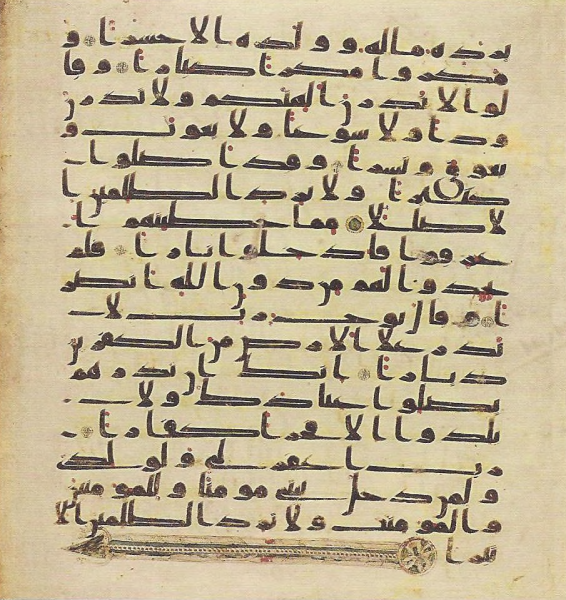 يزده ماله و ولده الا خسارا و
مكروا مكرا كبارا و قا
لوا لا تذرن الهتكم ولا تذرن
ودا ولا سوعا ولا يغوث و
يعوق ونسرا وقد اضلوا
كثيرا ولا تزد الظلمين ا
لا ضللا مما خطيتهم ا
غرقوا فادخلوا نارا فلم
يجدوا لهم من دون الله انصر
ا و قال نوح رب لا
تذر علا الارض من الكفرين
ديارا انك ان تذرهم
يضلوا عبادك ولا
يلدوا الا فجرا كفارا
رب اغفر لي و لولدي
ولمن دخل بيتي مومنا وللمومنين
والمومنت ولا تزد الظلمين الا
تبارا